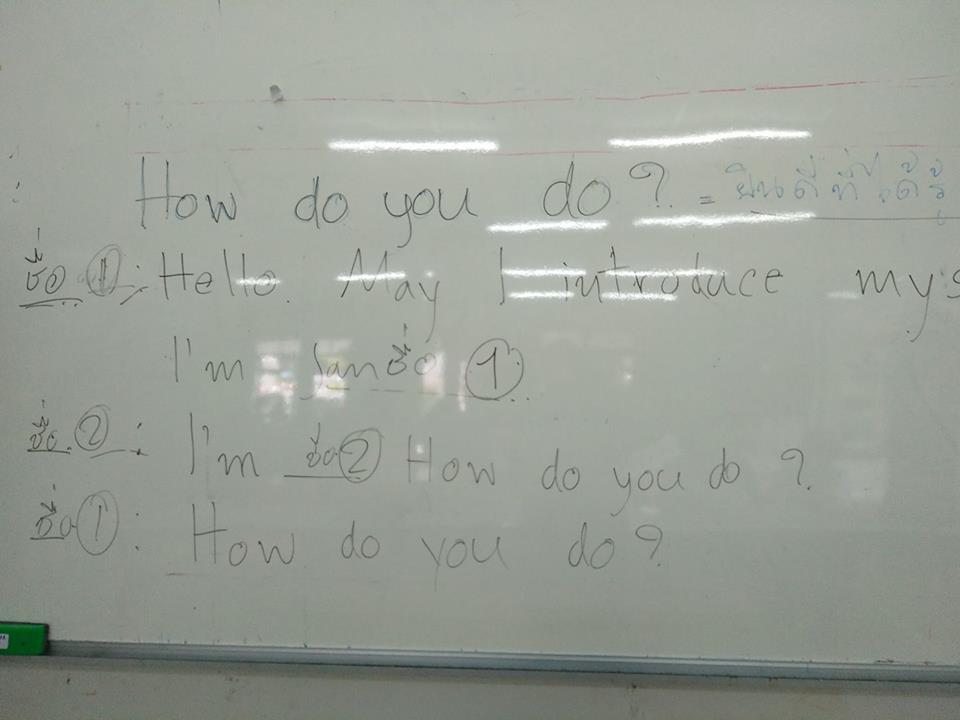 How do you do? = ยินดีที่ได้รู้
ชื่อ ①: Hello. May I introduce mys
I'm Jan ชื่อ ①
ชื่อ ②: I'm ชื่อ ② How do you do?
ชื่อ ①: How do you do?